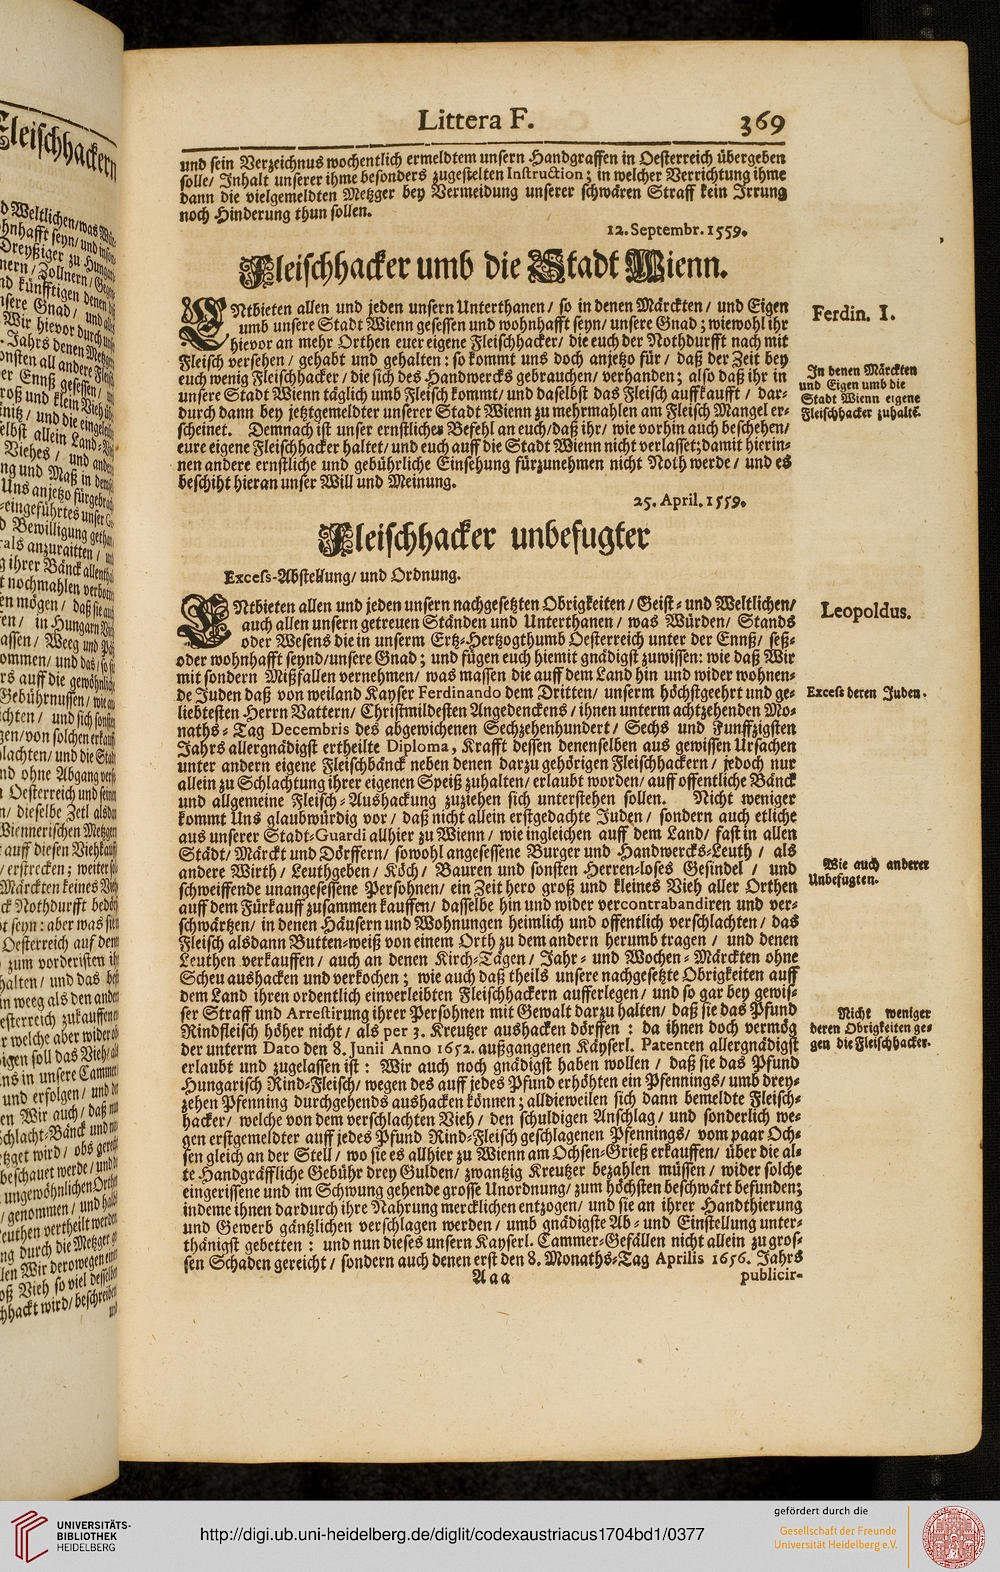 Littera F.
369
und sein Verzeichnus wochentlich ermeldtem unsern Handgraffen in Oesterreich übergeben
solle/ Inhalt unserer ihme besonders zugestelten Instruction; in welcher Verrichtung ihme
dann die vielgemeldten Metzger bey Vermeidung unserer schwären Straff kein Irrung
noch Hinderung thun sollen.
12. Septembr. 1559.
Fleischhacker umb die Stadt Wienn.
ENtbieten allen und jeden unsern Unterthanen/ so in denen Märckten/ und Eigen
umb unsere Stadt Wienn gesessen und wohnhafft seyn/ unsere Gnad; wiewohl ihr
hievor an mehr Orthen euer eigene Fleischhacker/ die euch der Nothdurfft nach mit
Fleisch versehen/ gehabt und gehalten: so kommt uns doch anjetzo für/ daß der Zeit bey
euch wenig Fleischhacker/ die sich des Handwercks gebrauchen/ verhanden; also daß ihr in
unsere Stadt Wienn täglich umb Fleisch kommt/ und daselbst das Fleisch auffkaufft/ dar-
durch dann bey jetztgemeldter unserer Stadt Wienn zu mehrmahlen am Fleisch Mangel er-
scheinet. Demnach ist unser ernstliches Befehl an euch/daß ihr/ wie vorhin auch beschehen/
eure eigene Fleischhacker haltet/ und euch auff die Stadt Wienn nicht verlasset;damit hierin-
nen andere ernstliche und gebührliche Einsehung fürzunehmen nicht Noth werde/ und es
beschiht hieran unser Will und Meinung.
Ferdin. I.
In denen Märckten
und Eigen umb die
Stadt Wienn eigene
Fleischhacker zuhaltē.
25. April. 1559.
Fleischhacker unbefugter
Excess-Abstellung/ und Ordnung.
ENtbieten allen und jeden unsern nachgesetzten Obrigkeiten/ Geist- und Weltlichen/
auch allen unsern getreuen Ständen und Unterthanen/ was Würden/ Stands
oder Wesens die in unserm Ertz-Hertzogthumb Oesterreich unter der Ennß/ seß-
oder wohnhafft seynd/unsere Gnad; und fügen euch hiemit gnädigst zuwissen: wie daß Wir
mit sondern Mißfallen vernehmen/ was massen die auff dem Land hin und wider wohnen-
de Juden daß von weiland Kayser Ferdinando dem Dritten/ unserm höchstgeehrt und ge-
liebtesten Herrn Vattern/ Christmildesten Angedenckens/ ihnen unterm achtzehenden Mo-
naths-Tag Decembris des abgewichenen Sechzehenhundert/ Sechs und Funffzigsten
Jahrs allergnädigst ertheilte Diploma, Krafft dessen denenselben aus gewissen Ursachen
unter andern eigene Fleischbänck neben denen darzu gehörigen Fleischhackern/ jedoch nur
allein zu Schlachtung ihrer eigenen Speiß zuhalten/ erlaubt worden/ auff offentliche Bänck
und allgemeine Fleisch-Aushackung zuziehen sich unterstehen sollen. Nicht weniger
kommt Uns glaubwürdig vor/ daß nicht allein erstgedachte Juden/ sondern auch etliche
aus unserer Stadt-Guardi allhier zu Wienn/ wie ingleichen auff dem Land/ fast in allen
Städt/ Märckt und Dörffern/ sowohl angesessene Burger und Handwercks-Leuth/ als
andere Wirth/ Leuthgeben/ Köch/ Bauren und sonsten Herren-loses Gesindel/ und
schweiffende unangesessene Persohnen/ ein Zeit hero groß und kleines Vieh aller Orthen
auff dem Fürkauff zusammen kauffen/ dasselbe hin und wider vercontrabandiren und ver-
schwärtzen/ in denen Häusern und Wohnungen heimlich und offentlich verschlachten/ das
Fleisch alsdann Butten-weiß von einem Orth zu dem andern herumb tragen/ und denen
Leuthen verkauffen/ auch an denen Kirch-Tägen/ Jahr- und Wochen-Märckten ohne
Scheu aushacken und verkochen; wie auch daß theils unsere nachgesetzte Obrigkeiten auff
dem Land ihren ordentlich einverleibten Fleischhackern aufferlegen/ und so gar bey gewis-
ser Straff und Arrestirung ihrer Persohnen mit Gewalt darzu halten/ daß sie das Pfund
Rindfleisch höher nicht/ als per 3. Kreutzer aushacken dörffen: da ihnen doch vermög
der unterm Dato den 8. Junii Anno 1652. außgangenen Käyserl. Patenten allergnädigst
erlaubt und zugelassen ist: Wir auch noch gnädigst haben wollen/ daß sie das Pfund
Hungarisch Rind-Fleisch/ wegen des auff jedes Pfund erhöhten ein Pfennings/ umb drey-
zehen Pfenning durchgehends aushacken können; alldieweilen sich dann bemeldte Fleisch-
hacker/ welche von dem verschlachten Vieh/ den schuldigen Anschlag/ und sonderlich we-
gen erstgemeldter auff jedes Pfund Rind-Fleisch geschlagenen Pfennings/ vom paar Och-
sen gleich an der Stell/ wo sie es allhier zu Wienn am Ochsen-Grieß erkauffen/ über die al-
te Handgräffliche Gebühr drey Gulden/ zwantzig Kreutzer bezahlen müssen/ wider solche
eingerissene und im Schwung gehende grosse Unordnung/ zum höchsten beschwärt befunden;
indeme ihnen dardurch ihre Nahrung mercklichen entzogen/ und sie an ihrer Handthierung
und Gewerb gäntzlichen verschlagen werden/ umb gnädigste Ab- und Einstellung unter-
thänigst gebetten: und nun dieses unsern Kayserl. Cammer-Gefällen nicht allein zu gros-
sen Schaden gereicht/ sondern auch denen erst den 8. Monaths-Tag Aprilis 1656. Jahrs
Aaa
publicir-
Leopoldus.
Excess deren Juden.
Wie auch anderer
Unbefugten.
Nicht weniger
deren Obrigkeiten ge-
gen die Fleischhacker.
Fleischhackern
UNIVERSITÄTS-
BIBLIOTHEK
HEIDELBERG
http://digi.ub.uni-heidelberg.de/diglit/codexaustriacus1704bd1/0377
gefördert durch die
Gesellschaft der Freunde
Universität Heidelberg e.V.